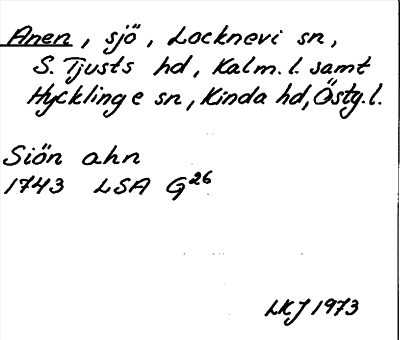 Anen, sjö, Locknevi sn,
S. Tjusts hd, Kalm. l. samt
Hycklinge sn, Kinda hd, Östg. l.
Siön ahn
1743 LSA G26
LKJ 1973